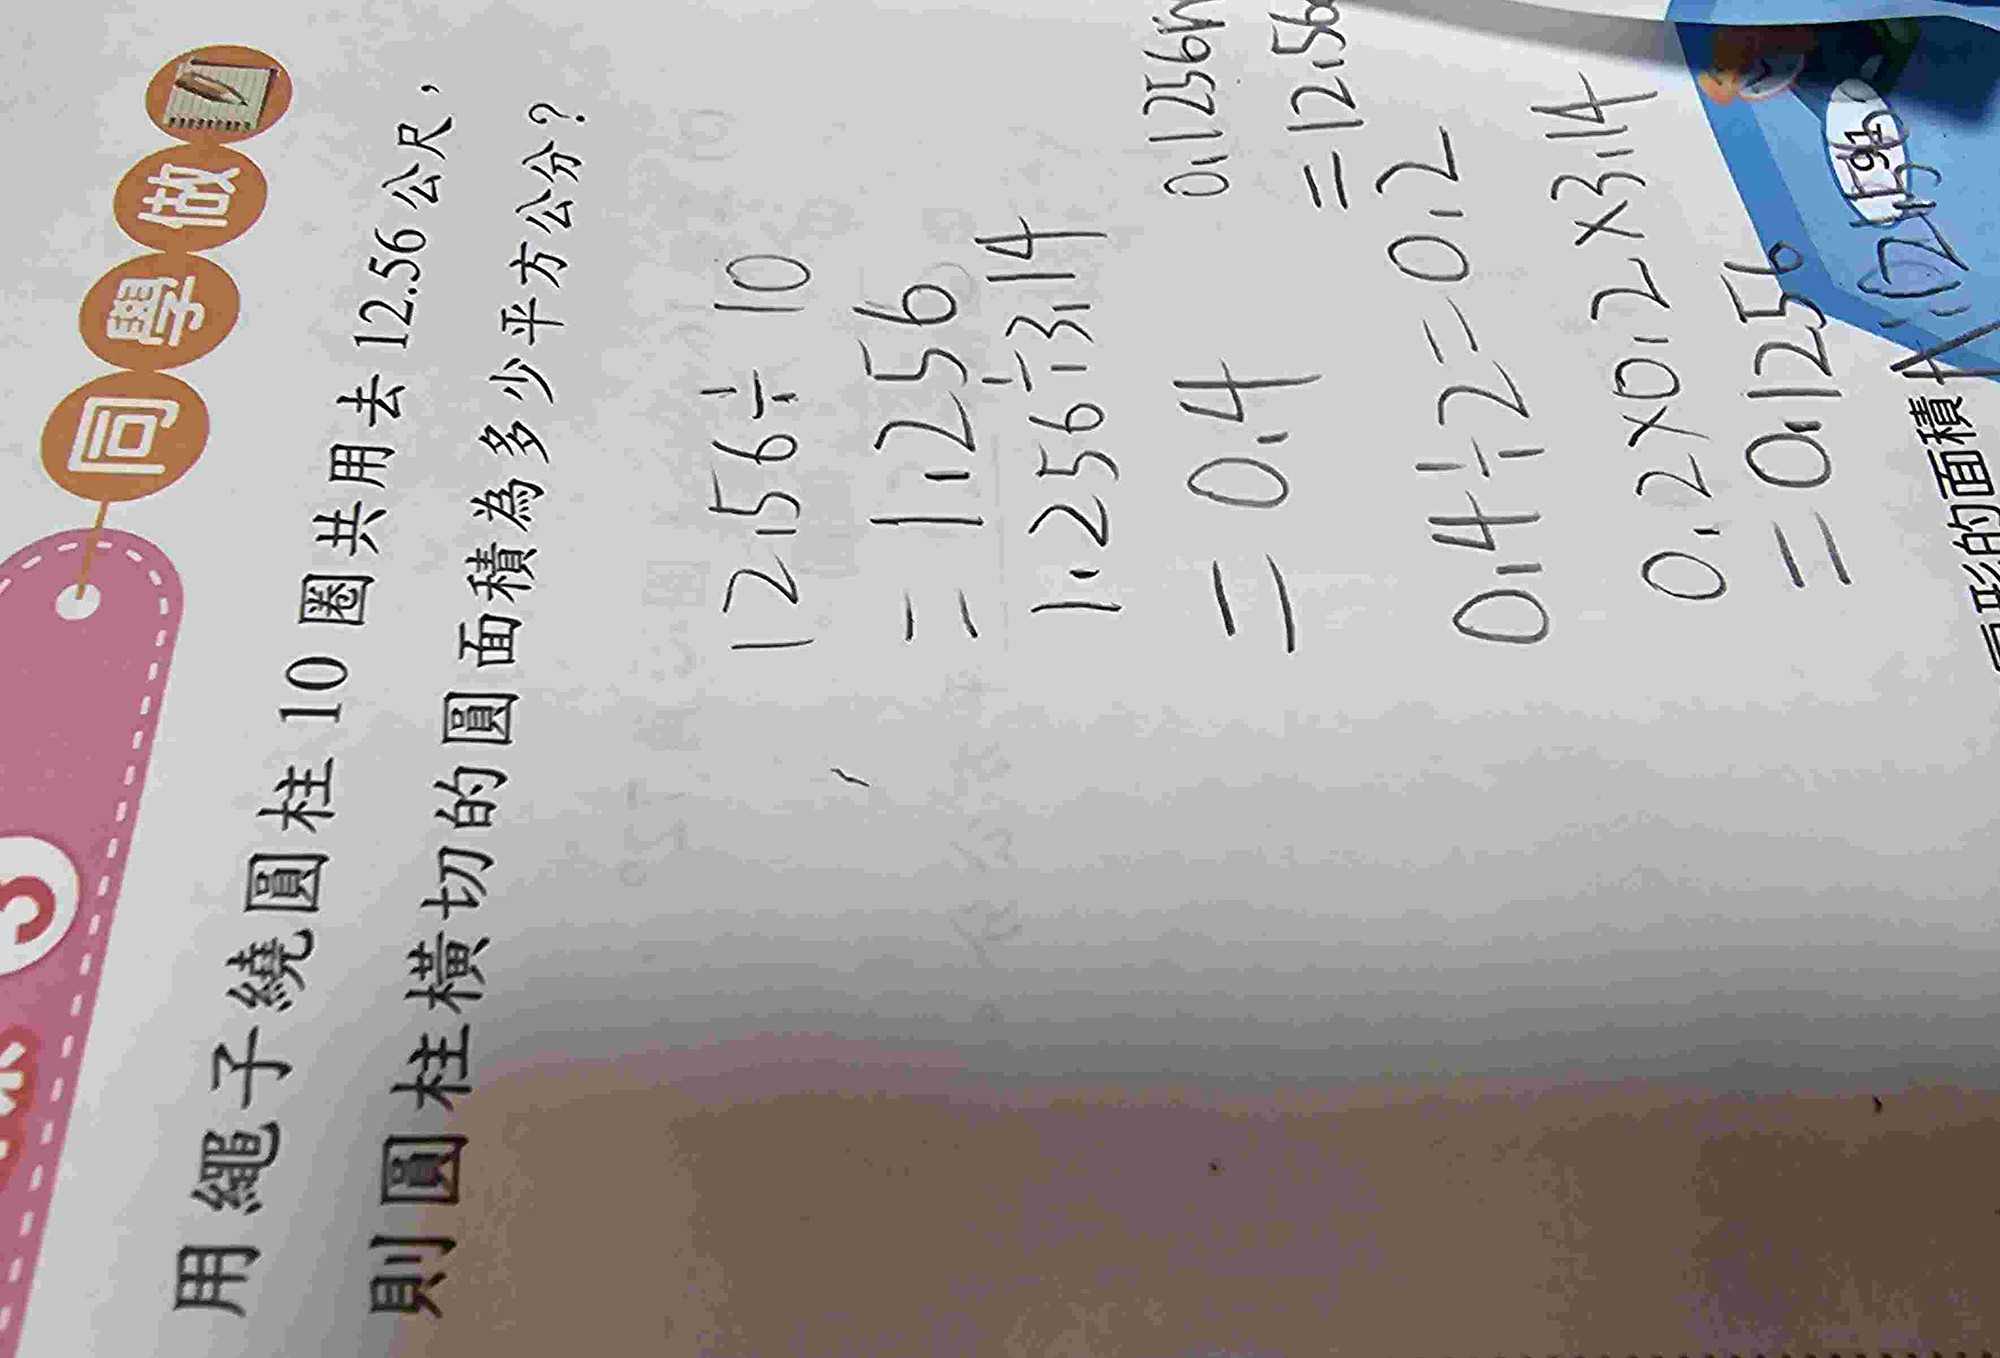 同學做
用繩子繞圓柱 10 圈共用去 12.56 公尺，
則圓柱橫切的圓面積為多少平方公分？
12.56÷10
=1.256
1.256÷3.14
=0.4
0.4÷2=0.2
0.2×0.2×3.14
=0.1256
0.1256m
=12.56
形的面積